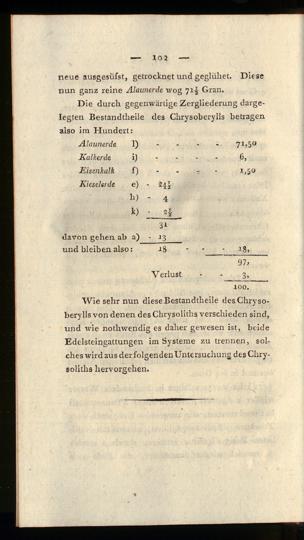 — 102 —
neue ausgesüſst, getrocknet und geglühet. Dieſe
nun ganz reine Alaunerde wog 71½ Gran.
Die durch gegenwärtige Zergliederung darge-
legten Beſtandtheile des Chryſoberylls betragen
alſo im Hundert:
Alaunerde l) - - - - 71,50
Kalkerde i) - - - - 6,
Eiſenkalk f) - - - - 1,50
Kieſelerde e) - 24½
h) - 4
k) - 2½
31
davon gehen ab a) - 13
und bleiben alſo: 18 - - - 18,
97,
Verluſt - - 3,
100.
Wie ſehr nun dieſe Beſtandtheile des Chryſo-
berylls von denen des Chryſoliths verſchieden ſind,
und wie nothwendig es daher geweſen iſt, beide
Edelſteingattungen im Syſteme zu trennen, ſol-
ches wird aus der folgenden Unterſuchung des Chry-
ſoliths hervorgehen.